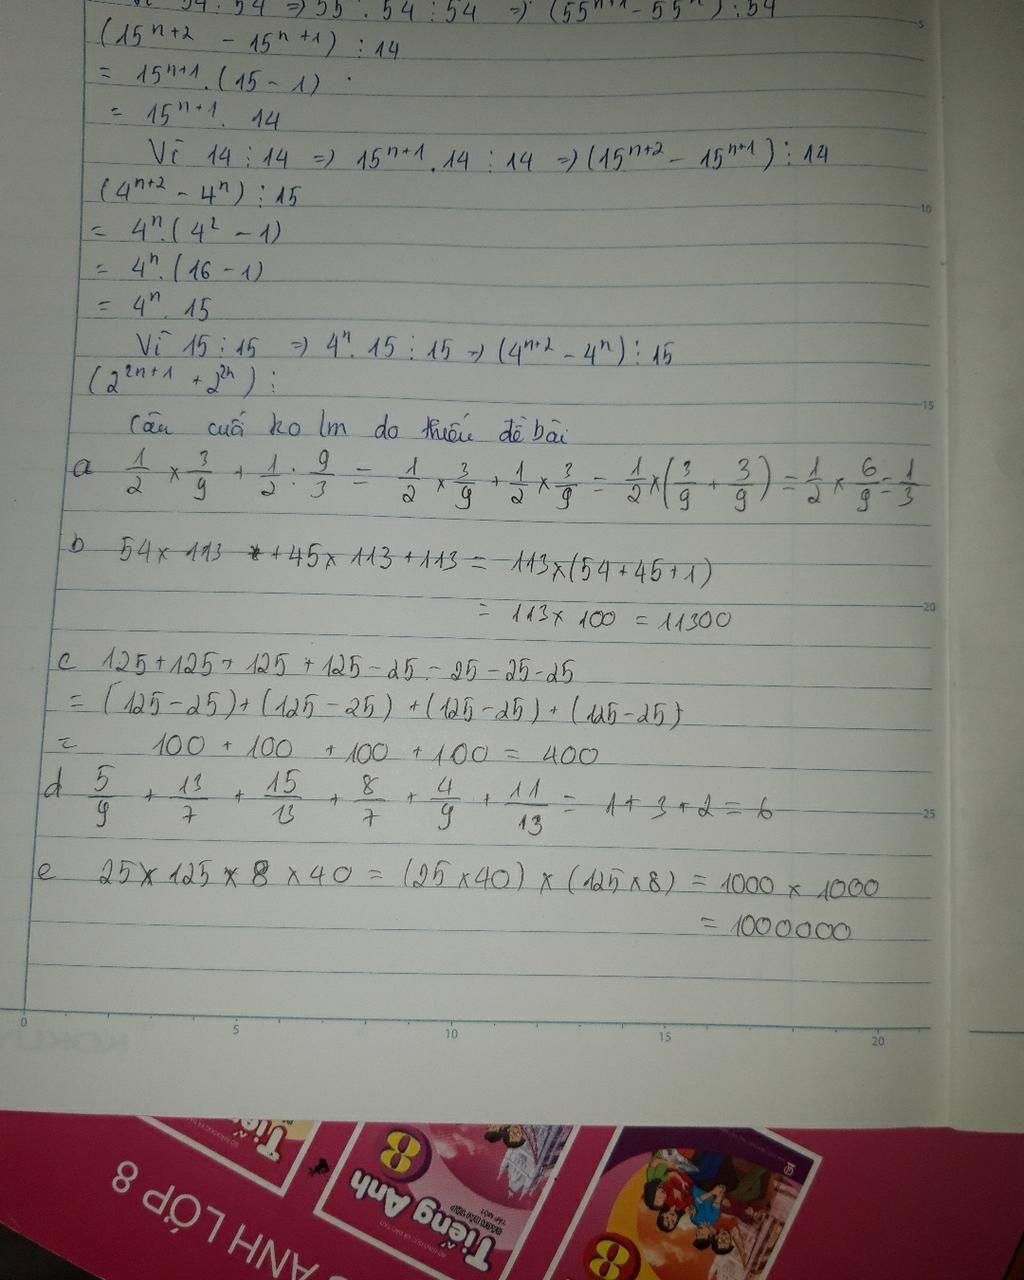 54 ⋮ 54 => 55ⁿ . 54 ⋮ 54 => (55ⁿ⁺¹ - 55ⁿ) ⋮ 54
(15ⁿ⁺² - 15ⁿ⁺¹) ⋮ 14
= 15ⁿ⁺¹.(15 - 1)
= 15ⁿ⁺¹. 14
Vì 14 ⋮ 14 => 15ⁿ⁺¹.14 ⋮ 14 => (15ⁿ⁺² - 15ⁿ⁺¹) ⋮ 14
(4ⁿ⁺² - 4ⁿ) ⋮ 15
= 4ⁿ.(4² - 1)
= 4ⁿ.(16 - 1)
= 4ⁿ. 15
Vì 15 ⋮ 15 => 4ⁿ. 15 ⋮ 15 => (4ⁿ⁺² - 4ⁿ) ⋮ 15
(2²ⁿ⁺¹ + 2²ⁿ) ⋮
Câu cuối ko lm do thiếu đề bài
a 1/2 × 3/9 + 1/2 : 9/3 = 1/2 × 3/9 + 1/2 × 3/9 = 1/2 × (3/9 + 3/9) = 1/2 × 6/9 = 1/3
b 54 × 113 + 45 × 113 + 113 = 113 × (54 + 45 + 1)
= 113 × 100 = 11300
c 125 + 125 + 125 + 125 - 25 - 25 - 25 - 25
= (125 - 25) + (125 - 25) + (125 - 25) + (125 - 25)
= 100 + 100 + 100 + 100 = 400
d 5/9 + 13/7 + 15/13 + 8/7 + 4/9 + 11/13 = 1 + 3 + 2 = 6
e 25 × 125 × 8 × 40 = (25 × 40) × (125 × 8) = 1000 × 1000
= 1000000
5
10
15
20
25
0 5 10 15 20
ANH LỚP 8
Tiếng Anh 8
TẬP MỘT
Tiế
8